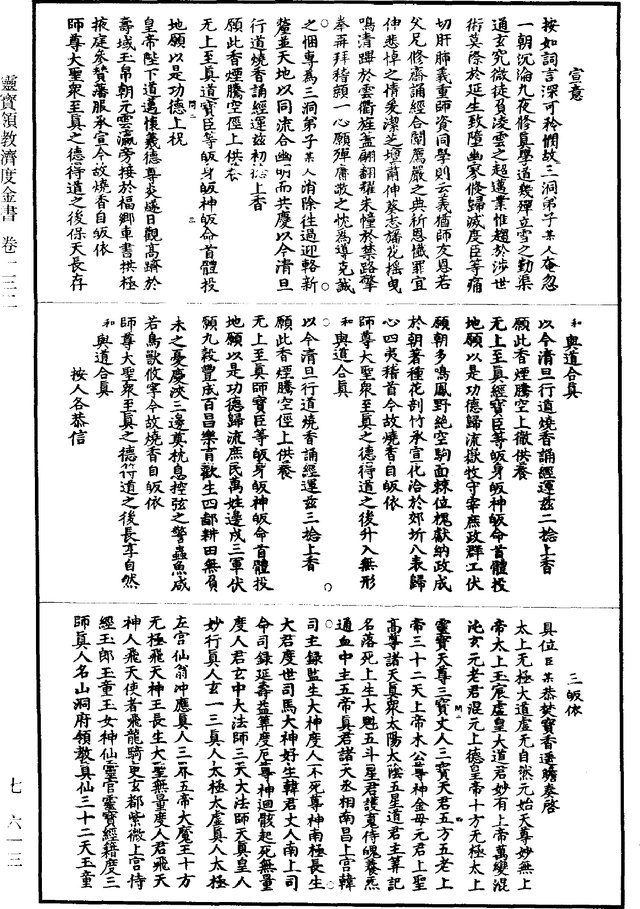 宣意
按如詞言深可矜憫故三洞弟子某人奄忽
一朝沉淪九夜修真學道幾殫立雪之勤渠
通玄究微徒負淩雲之超邁業惟趨於涉世
術莫際於延生致墮幽冢倏歸滅度臣等痛
切肝肺義重師資同學則云義猶師友恩若
父兄修齋誦經合闡厲嚴之典祈恩懺罪宜
伸悲悼之情爰潔芝壇荐伸蔡志旛花搖曳
鳴清蹕於雲衢旌蓋翩翻耀朱幢於禁路擎
奉再拜稽顙一心願殫庸敬之忱為導克誠
之悃專為三洞弟子某人消除往過迎輅新
釐並天地以同流合幽明而共慶以今清旦
行道燒香誦經運茲初捻上香
願此香煙騰空徑上供養
無上至真道寶臣等皈身皈神皈命首體投
地願以是功德上祝
皇帝陛下道邁懷羲德尊炎遂日觀高躋於
壽域玉帛朝元雲瀛旁接於福鄉車書拱極
掖庭參贊藩服承宣今故燒香自皈依
師尊大聖衆至真之德得道之後保天長存
和與道合真
以今清旦行道燒香誦經運茲二捻上香
願此香煙騰空上徹供養
無上至真經寶臣等皈身皈神皈命首體投
地願以是功德歸流嶽牧守宰庶政群工伏
願朝多鳴鳳野絕空駒面棘位槐獻納政成
於朝著種花剖竹承宣化洽於郊圻八表歸
心四夷稽首今故燒香自皈依
師尊大聖衆至真之德得道之後升入無形
和與道合真
以今清旦行道燒香誦經運茲三捻上香
願此香煙騰空徑上供養
無上至真師寶臣等皈身皈神皈命首體投
地願以是功德歸流庶民萬姓邊戍三軍伏
願九穀豐成百昌樂育歡生四鄙耕田無負
耒之憂慶浹三邊奠枕息控弦之警蟲魚咸
若鳥獸攸寧今故燒香自皈依
師尊大聖衆至真之德符道之後長享自然
和與道合真
按人各恭信
三皈依
具位臣某恭焚寶香遙瞻奏啓
太上無極大道虛無自然元始天尊妙無上
帝太上玉宸虛皇大道君妙有上帝萬變混
沌玄元老君混元上德皇帝十方無極太上
靈寶天尊三寶丈人三寶天君五方五老上
帝三十二天上帝木公尊神金母元君上聖
高尊諸天真衆太陽太陰五星道君主筭記
名落死上生大魁五斗星君護夏侍魄養炁
通血中主五帝真君諸天丞相南昌上宮韓
司主錄監生大神度人不死尊神南極長生
大君度世司馬大神好生韓君丈人南上司
命司錄延壽益筭度厄尊神迴骸起死無量
度人君玄中大法師三天大法師天真皇人
妙行真人玄一三真人太極太虛真人太極
左宮仙翁沖應真人三界五帝大魔王十方
無極飛天神王長生大聖無量度人君飛天
神人飛天使者飛龍騎吏玄都紫微上宮侍
經玉郎玉童玉女神仙靈官靈寶經籍度三
師真人名山洞府領教真仙三十二天玉童
靈寶領教濟度金書 卷一三二
七 六一三